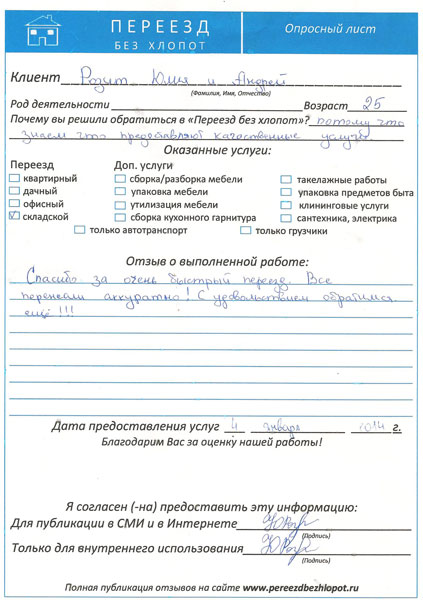 ПЕРЕЕЗД
БЕЗ ХЛОПОТ
Опросный лист
Клиент Розит Юлия и Андрей
(Фамилия, Имя, Отчество)
Род деятельности Возраст 25
Почему вы решили обратиться в «Переезд без хлопот»? потому что
знаем что предоставляют качественные услуги.
Оказанные услуги:
Переезд Доп. услуги
квартирный сборка/разборка мебели такелажные работы
дачный упаковка мебели упаковка предметов быта
офисный утилизация мебели клининговые услуги
складской сборка кухонного гарнитура сантехника, электрика
только автотранспорт только грузчики
Отзыв о выполненной работе:
Спасибо за очень быстрый переезд. Все
перенесли аккуратно! С удовольствием обратимся
ещё!!!
Дата предоставления услуг 4 января 2014 г.
Благодарим Вас за оценку нашей работы!
Я согласен (-на) предоставить эту информацию:
Для публикации в СМИ и в Интернете
(Подпись)
Только для внутреннего использования
(Подпись)
Полная публикация отзывов на сайте www.pereezdbezhlopot.ru